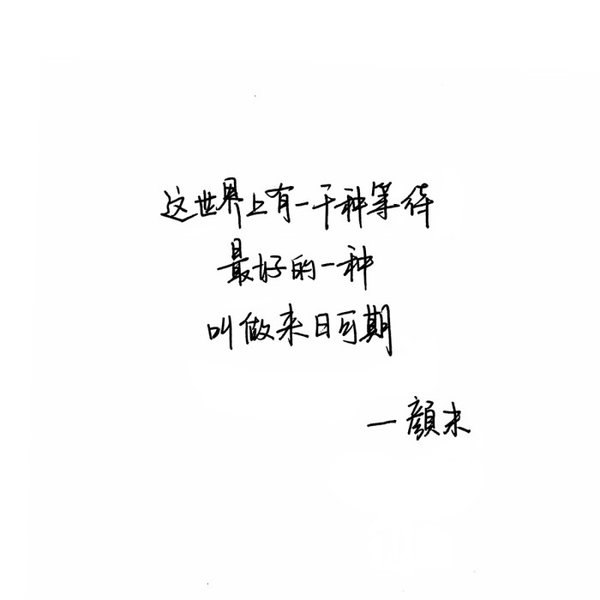 这世界上有一千种等待
最好的一种
叫做来日可期
一顏末